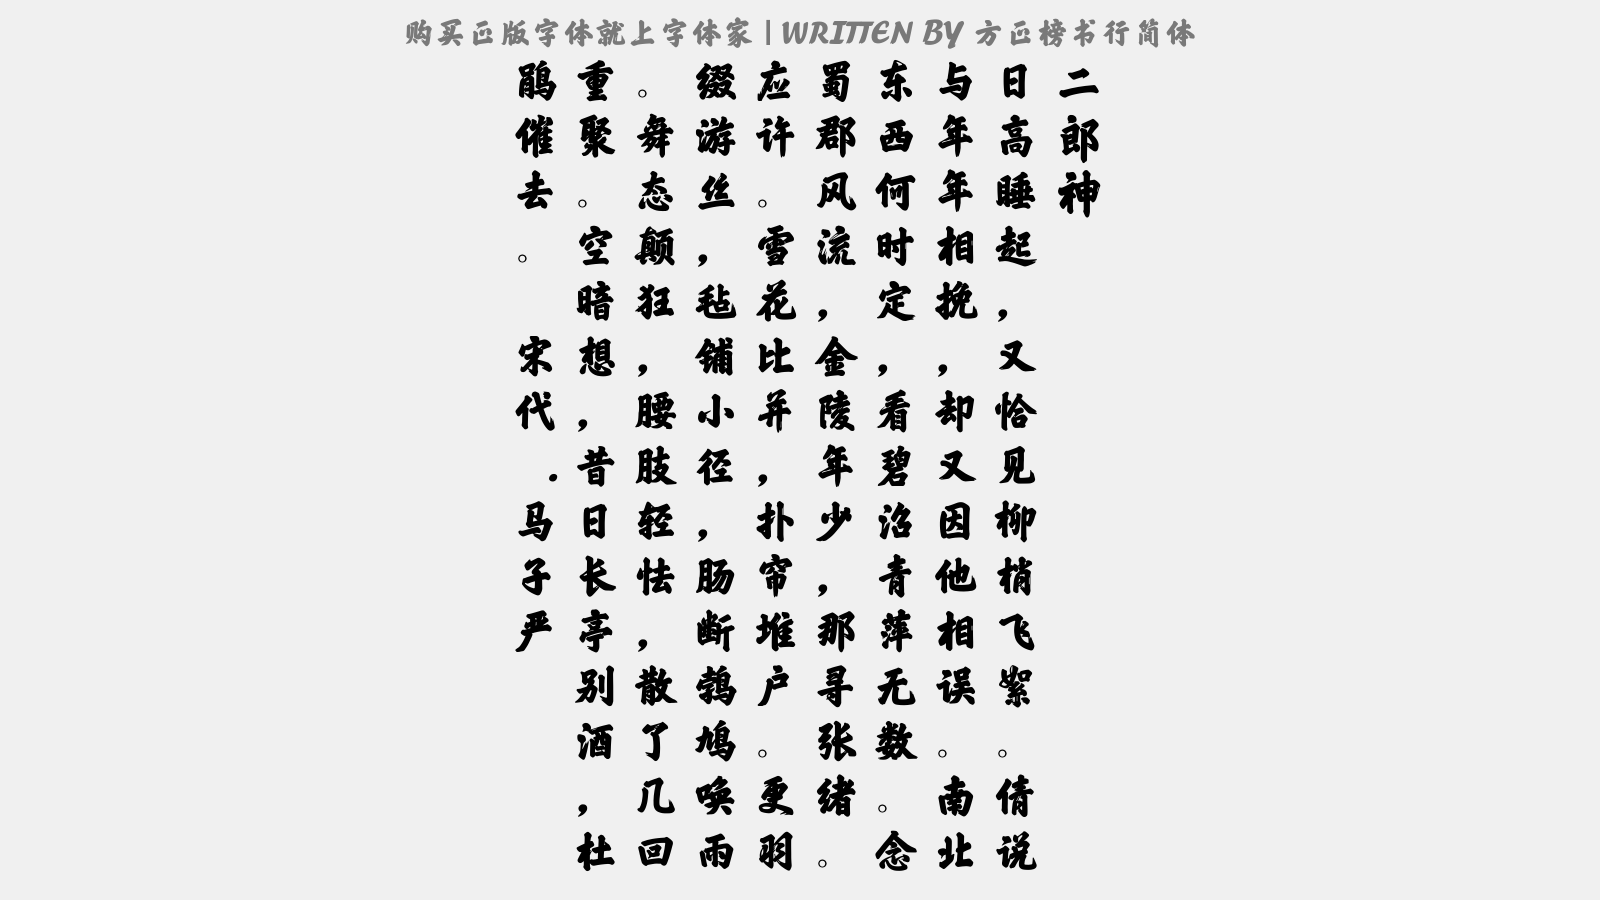 购买正版字体就上字体家 | WRITTEN BY 方正榜书行简体
二郎神
日高睡起，又恰见柳梢飞絮。倩说
与年年相挽，却又因他相误。南北
东西何时定，看碧沼青萍无数。念
蜀郡风流，金陵年少，那寻张绪。
应许。雪花比并，扑帘堆户。更羽
缀游丝，毡铺小径，肠断鹁鸠唤雨
。舞态颠狂，腰肢轻怯，散了几回
重聚。空暗想，昔日长亭别酒，杜
鹃催去。
宋代.马子严